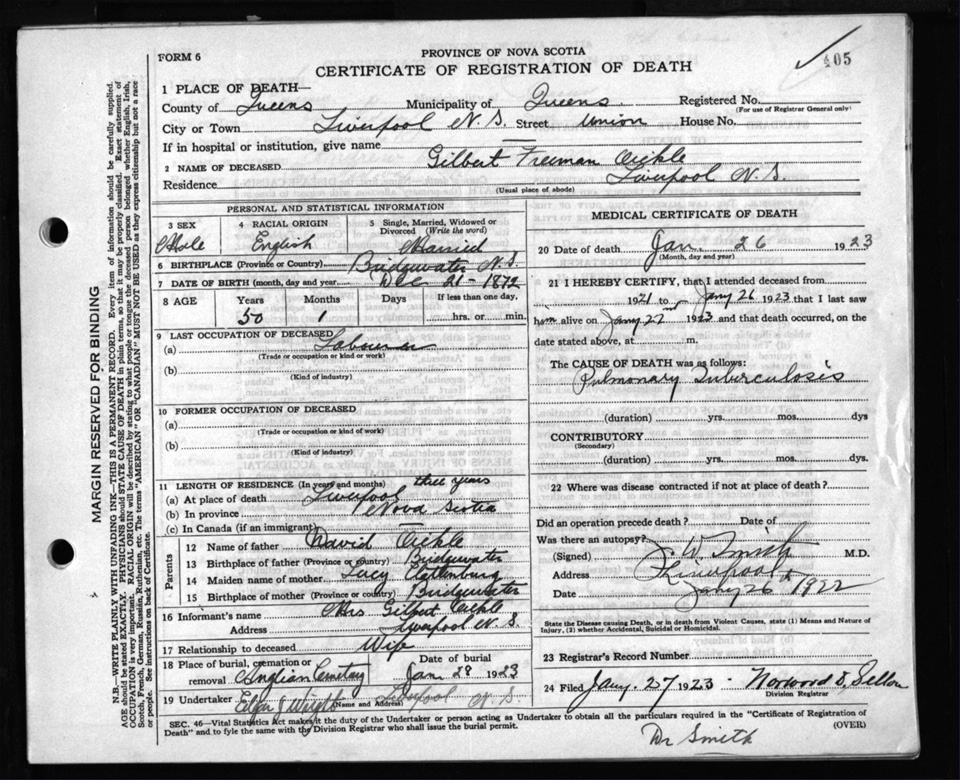 405
FORM 6
PROVINCE OF NOVA SCOTIA
CERTIFICATE OF REGISTRATION OF DEATH
1 PLACE OF DEATH—
County of Queens Municipality of Queens Registered No.
(For use of Registrar General only)
City or Town Liverpool N.S. Street Union House No.
If in hospital or institution, give name
2 NAME OF DECEASED Gilbert Freeman Eickle
Residence Liverpool N.S.
(Usual place of abode)
PERSONAL AND STATISTICAL INFORMATION
3 SEX 4 RACIAL ORIGIN 5 Single, Married, Widowed or Divorced (Write the word)
Male English Married
6 BIRTHPLACE (Province or Country) Bridgwater N.S.
7 DATE OF BIRTH (month, day and year) Dec 21 - 1872
8 AGE Years Months Days If less than one day,
50 1 hrs. or min.
9 LAST OCCUPATION OF DECEASED
(a) Labourer
(Trade or occupation or kind or work)
(b)
(Kind of industry)
10 FORMER OCCUPATION OF DECEASED
(a)
(Trade or occupation or kind of work)
(b)
(Kind of industry)
11 LENGTH OF RESIDENCE (In years and months) three years
(a) At place of death Liverpool
(b) In province Nova Scotia
(c) In Canada (if an immigrant)
Parents
12 Name of father David Eickle
13 Birthplace of father (Province or country) Bridgwater
14 Maiden name of mother Lucy
15 Birthplace of mother (Province or country) Bridgwater
16 Informant's name Mrs Gilbert Eickle
Address Liverpool N.S.
17 Relationship to deceased Wife
18 Place of burial, cremation or removal Anglian Cemetary Date of burial Jan 28 1923
19 Undertaker Liverpool N.S.
(Name and Address)
MEDICAL CERTIFICATE OF DEATH
20 Date of death Jan. 26 1923
(Month, day and year)
21 I HEREBY CERTIFY, that I attended deceased from
1921 to Jany 26 1923 that I last saw
him alive on Jany 22nd 1923 and that death occurred, on the
date stated above, at m.
The CAUSE OF DEATH was as follows:
Pulmonary Tuberculosis
(duration) yrs. mos. dys
CONTRIBUTORY
(Secondary)
(duration) yrs. mos. dys.
22 Where was disease contracted if not at place of death?
Did an operation precede death? Date of
Was there an autopsy?
(Signed) J. W. Smith M.D.
Address Liverpool
Date Jany 26 1922
State the Disease causing Death, or in death from Violent Causes, state (1) Means and Nature of Injury, (2) whether Accidental, Suicidal or Homicidal.
23 Registrar's Record Number
24 Filed Jany. 27 1923
Division Registrar
SEC. 46—Vital Statistics Act makes it the duty of the Undertaker or person acting as Undertaker to obtain all the particulars required in the "Certificate of Registration of
Death" and to fyle the same with the Division Registrar who shall issue burial permit.
(OVER)
Dr Smith
MARGIN RESERVED FOR BINDING
N.B.—WRITE PLAINLY WITH UNFADING INK—THIS IS A PERMANENT RECORD. Every item of information should be carefully supplied.
AGE should be stated EXACTLY. PHYSICIANS should STATE CAUSE OF DEATH in plain terms, so that it may be properly classified. Exact statement of
OCCUPATION is very important. RACIAL ORIGIN will be described by stating to what people or tongue the deceased person belonged whether English, Irish,
Scotch, French, German, Russian, Ruthenian, etc. The terms "AMERICAN" or "CANADIAN" MUST NOT BE USED as they express citizenship but not a race
or people. See instructions on back of Certificate.